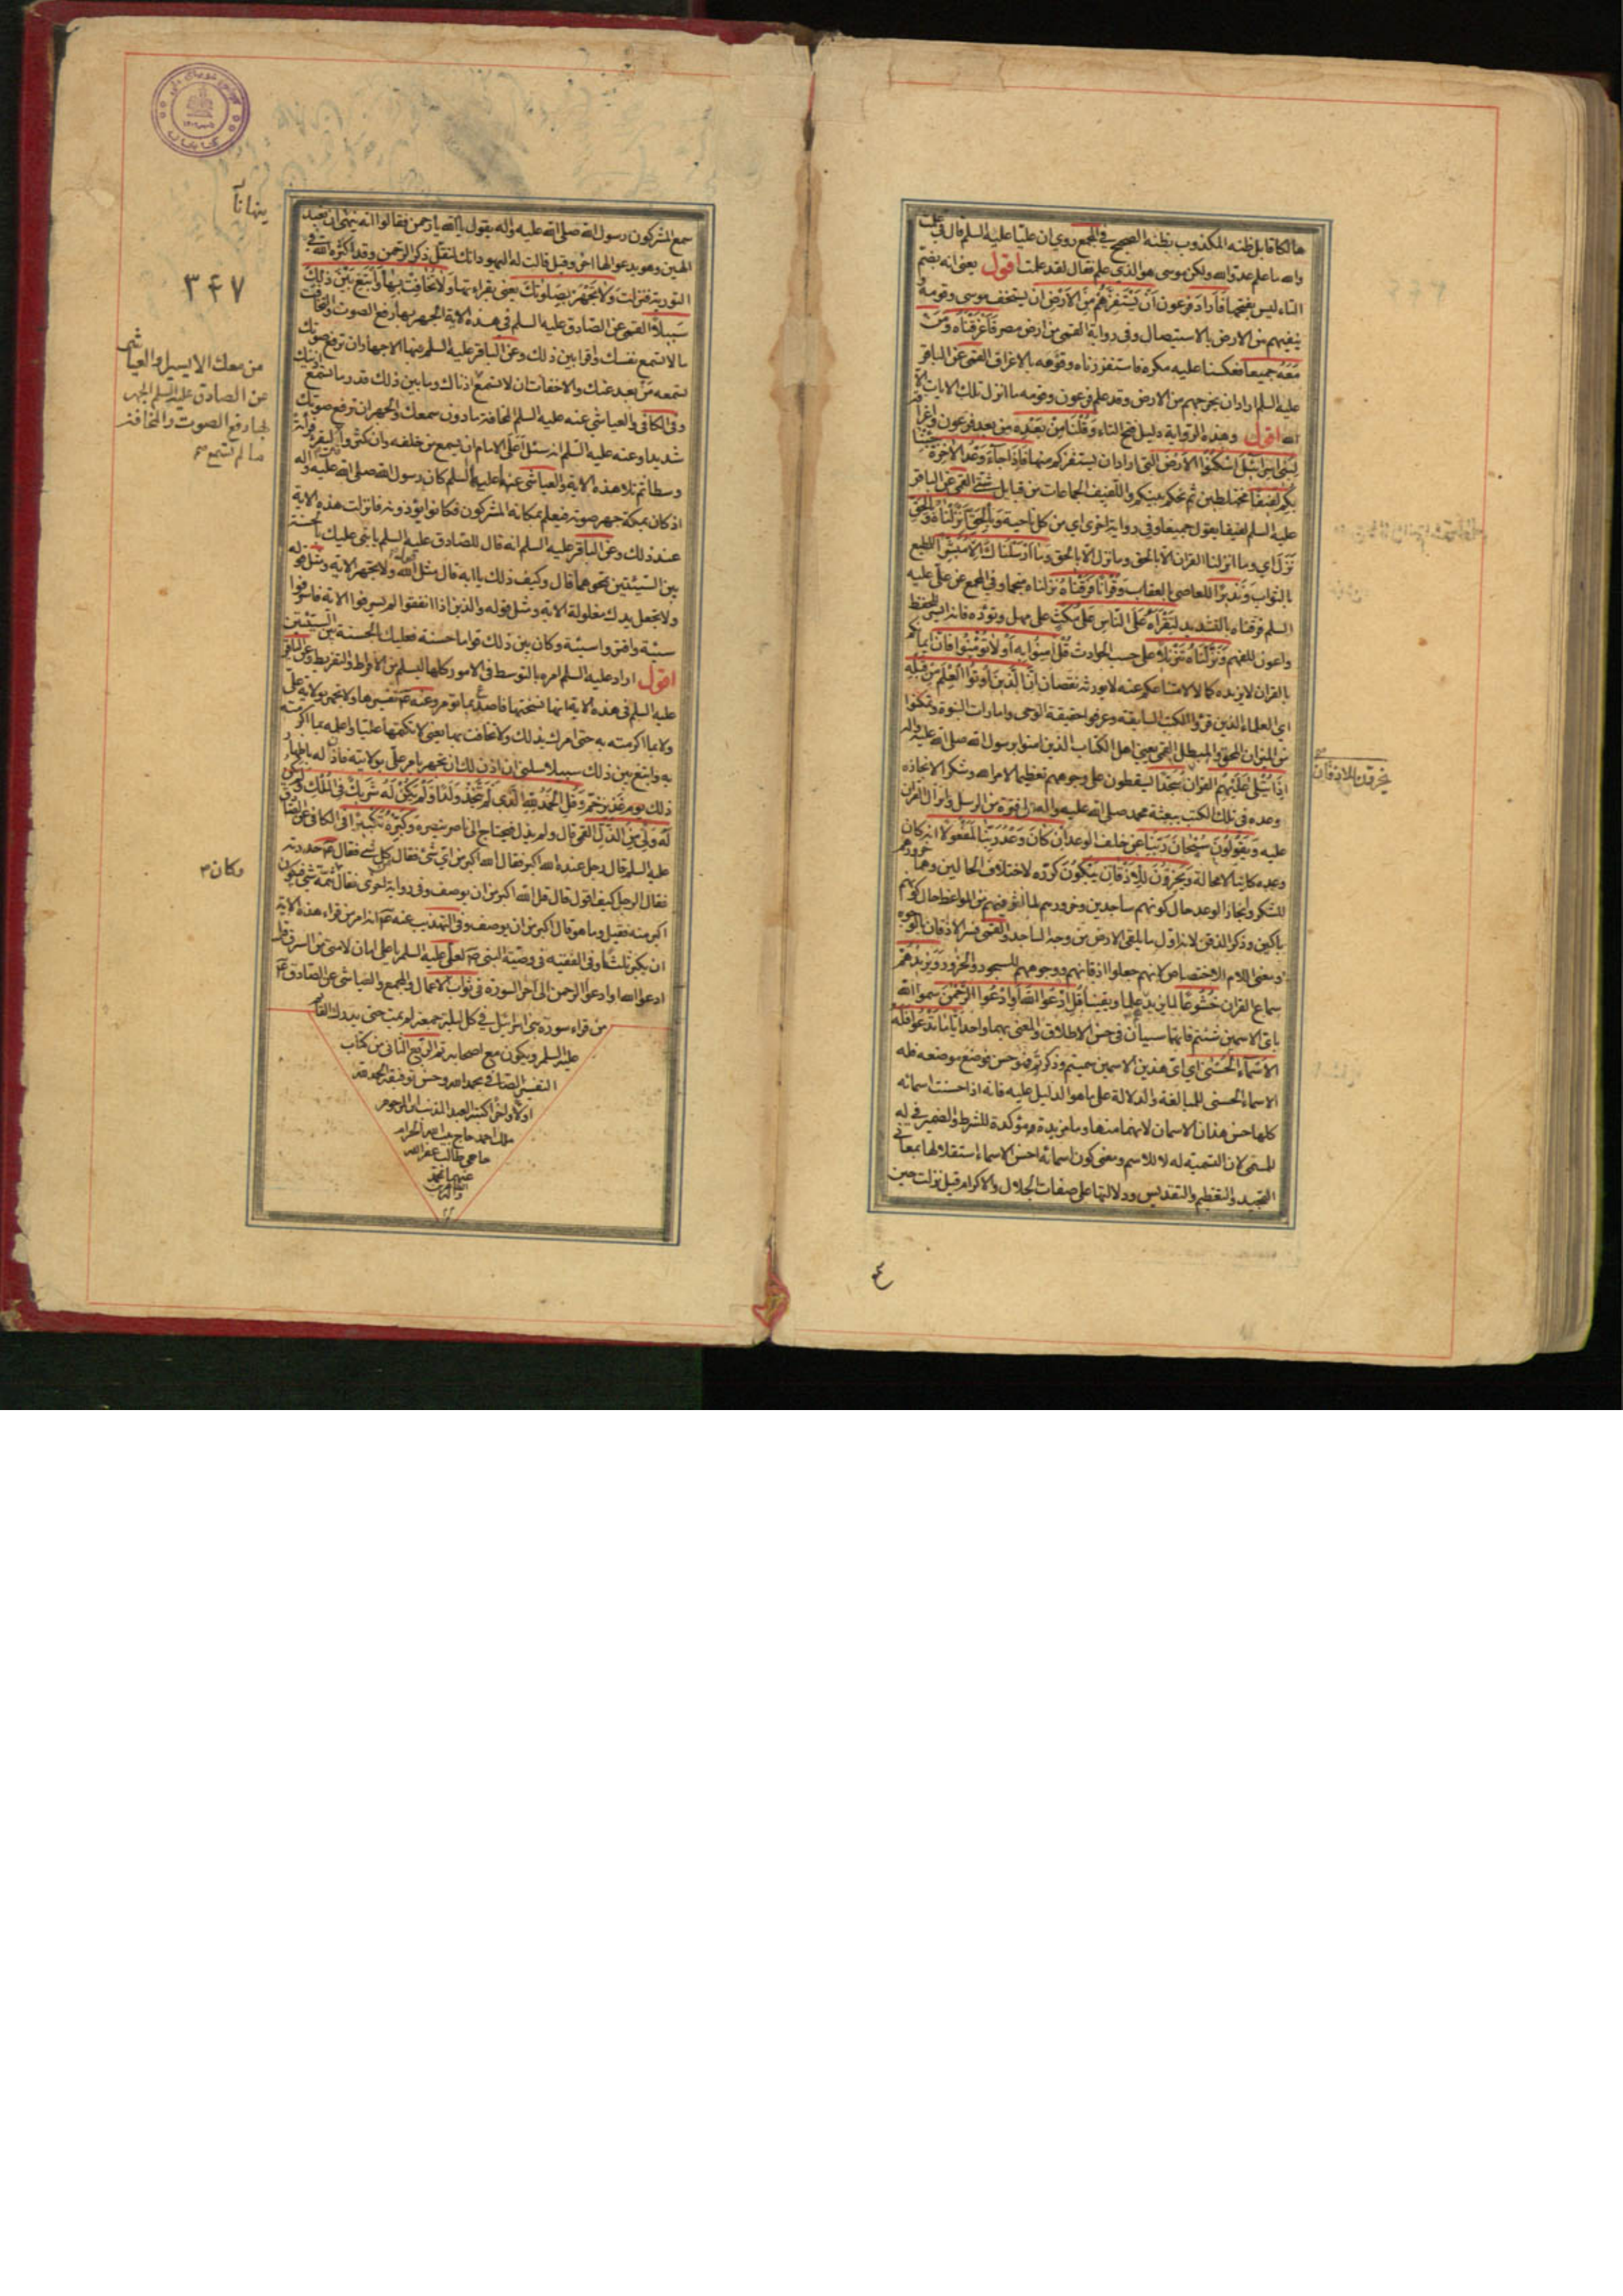 هالكا قابل ظنه المكذوب بظنه الصحيح في المجمع روي ان عليا عليه السلم قال في علمت
والله ما علم عدو الله ولكن موسى هو الذي علم فقال لقد علمت اقول يعني انه بضم
التاء ليس بفتحها فاراد فرعون أن يستفزهم من الأرض ان يستخف موسى وقومه و
ينفيهم من الارض بالاستيصال وفي رواية القمي من ارض مصر فأغرقناه ومن
معه جميعا فعكسنا عليه مكره فاستفززناه وقومه بالاغراق القمي عن الباقر
عليه السلم اراد ان يخرجهم من الارض وقد علم فرعون وقومه ما انزل تلك الايات الا
الله اقول وهذه الرواية دليل فتح التاء وقلنا من بعده من بعد فرعون واغراقه
لبني إسرائيل اسكنوا الأرض التي اراد ان يستفزكم منها فإذا جاء وعد الآخرة جئنا
بكم لفيفا مختلطين ثم نحكم بينكم واللفيف الجماعات من قبايل شتى القمي عن الباقر
عليه السلم لفيفا يقول جميعا وفي رواية اخرى اي من كل ناحية وبالحق أنزلناه وبالحق
نزل اي وما انزلنا القران الا بالحق وما نزل الا بالحق وما أرسلناك إلا مبشرا للمطيع
بالثواب ونذيرا للعاصي بالعقاب وقرآنا فرقناه نزلناه منجما وفي المجمع عن علي عليه
السلم فرقناه بالتشديد لتقرأه على الناس على مكث على مهل وتؤدة فانه ايسر للحفظ
واعون للفهم ونزلناه تنزيلا على حسب الحوادث قل آمنوا به أو لا تؤمنوا فان ايمانكم
بالقران لا يزيده كمالا وامتناعكم عنه لا يورثه نقصان إن الذين أوتوا العلم من قبله
اي العلماء الذين قرؤا الكتب السابقة وعرفوا حقيقة الوحي وامارات النبوة وتمكنوا
من الميزان المحق والمبطل القمي يعني اهل الكتاب الذين امنوا برسول الله صلى الله عليه واله
إذا يتلى عليهم القران سجدا يسقطون على وجوههم تعظيما لامر الله وشكرا لانجازه
وعده في تلك الكتب ببعثة محمد صلى الله عليه واله على فترة من الرسل وانزال القران
عليه ويقولون سبحان ربنا عن خلف الوعد إن كان وعد ربنا لمفعولا انه كان
وعده كاينا لا محالة ويخرون للأذقان يبكون كرره لاختلاف الحالين وهما خرورهم
للشكر وانجاز الوعد حال كونهم ساجدين وخرورهم لما اثر فيهم من المواعظ حال كونهم
باكين وذكر الذقن لانه اول ما يلقى الارض من وجه الساجد والقمي فسر الاذقان بالوجوه
ومعنى اللام الاختصاص لانهم جعلوا اذقانهم ووجوههم للسجود والخرور ويزيدهم
سماع القران خشوعا لما يزيدهم علما ويقينا قل ادعوا الله أو ادعوا الرحمن سموا الله
باي الاسمين شئتم فانهما سيان في حسن الاطلاق والمعنى بهما واحد أيا ما تدعوا فله
الأسماء الحسنى اي اي هذين الاسمين سميتم وذكرتم فهو حسن فوضع موضعه فله
الاسماء الحسنى للمبالغة والدلالة على ما هو الدليل عليه فانه اذا حسنت اسمائه
كلها حسن هذان الاسمان لانهما منها وما مزيدة مؤكدة للشرط والضمير في له
للمسمى لان التسمية له لا للاسم ومعنى كون اسمائه احسن الاسماء استقلالها بمعاني
التمجيد والتعظيم والتقديس ودلالتها على صفات الجلال والاكرام قيل نزلت حين
يخرون للاذقان
سمع المشركون رسول الله صلى الله عليه واله يقول يا الله يا رحمن فقالوا انه ينهانا ان نعبد
الهين وهو يدعو الها اخر وقيل قالت له اليهود انك لتقل ذكر الرحمن وقد اكثره الله في
التورية فنزلت ولا تجهر بصلوتك يعني بقراءتها ولا تخافت بها وابتغ بين ذلك
سبيلا القمي عن الصادق عليه السلم في هذه الاية الجهر بها رفع الصوت والتخافت
ما لا تسمع نفسك واقرا بين ذلك وعن الباقر عليه السلم فيها الاجهار ان ترفع صوتك
تسمعه من بعد عنك والاخفات ان لا تسمع اذناك وما بين ذلك قدر ما تسمع اذنيك
وفي الكافي والعياشي عنه عليه السلم المخافتة ما دون سمعك والجهر ان ترفع صوتك
شديدا وعنه عليه السلم انه سئل أعلى الامام ان يسمع من خلفه وان كثروا قال ليقرء قراءة
وسطا ثم تلا هذه الاية والعياشي عنهما عليهما السلم كان رسول الله صلى الله عليه واله
اذ كان بمكة جهر صوته فيعلم بمكانه المشركون فكانوا يؤذونه فانزلت هذه الاية
عند ذلك وعن الباقر عليه السلم انه قال للصادق عليه السلم يا بني عليك بالحسنة
بين السيئتين تمحوهما قال وكيف ذلك يا ابه قال مثل قول الله ولا تجهر الاية ومثل قوله
ولا تجعل يدك مغلولة الاية ومثل قوله والذين اذا انفقوا لم يسرفوا الاية فاسرفوا
سيئة واقتروا سيئة وكان بين ذلك قواما حسنة فعليك بالحسنة بين السيئتين
اقول اراد عليه السلم امره بالتوسط في الامور كلها ليسلم من الافراط والتفريط وعن الباقر
عليه السلم في هذه الاية انها نسختها فاصدع بما تؤمر وعنه تفسيرها ولا تجهر بولاية علي
ولا بما اكرمته به حتى امرك بذلك ولا تخافت بها يعني لا تكتمها عليا واعلمه بما اكرمته
به وابتغ بين ذلك سبيلا سلني ان اذن لك ان تجهر بامر علي بولايته فاذن له باظهار
ذلك يوم غدير خم وقل الحمد لله الذي لم يتخذ ولدا ولم يكن له شريك في الملك ولم يكن
له ولي من الذل القمي قال ولم يذل فيحتاج الى ناصر ينصره وكبره تكبيرا في الكافي عن الصادق
عليه السلم قال رجل عنده الله اكبر فقال الله اكبر من اي شئ فقال من كل شئ فقال حددته
فقال الرجل كيف اقول قال قل الله اكبر من ان يوصف وفي رواية اخرى فقال وكان ثمة شئ فيكون
اكبر منه فقيل وما هو قال اكبر من ان يوصف وفي التهذيب عنه انه امر من قراء هذه الاية
ان يكبر ثلثا وفي الفقيه في وصية النبي لعلي عليه السلم يا علي امان لامتي من السرق قل
ادعوا الله او ادعوا الرحمن الى اخر السورة في ثواب الاعمال والمجمع والعياشي عن الصادق
من قراء سورة بني اسرائيل في كل ليلة جمعة لم يمت حتى يدرك القائم
عليه السلم ويكون مع اصحابه تم الربع الثاني من كتاب
التفسير الصافي بحمد الله وحسن توفيقه الحمد لله
اولا واخرا كتبه العبد المذنب ابن المرحوم
ملك احمد حاج بيت الله الحرام
حاجي طالب غفر الله
عنهما بمحمد
واله
ينهانا
٣٤٧
من معك الا يسيرا والعياشي
عن الصادق عليه السلم الجهر
بها رفع الصوت والمخافتة
ما لم تسمع
وكان
٤